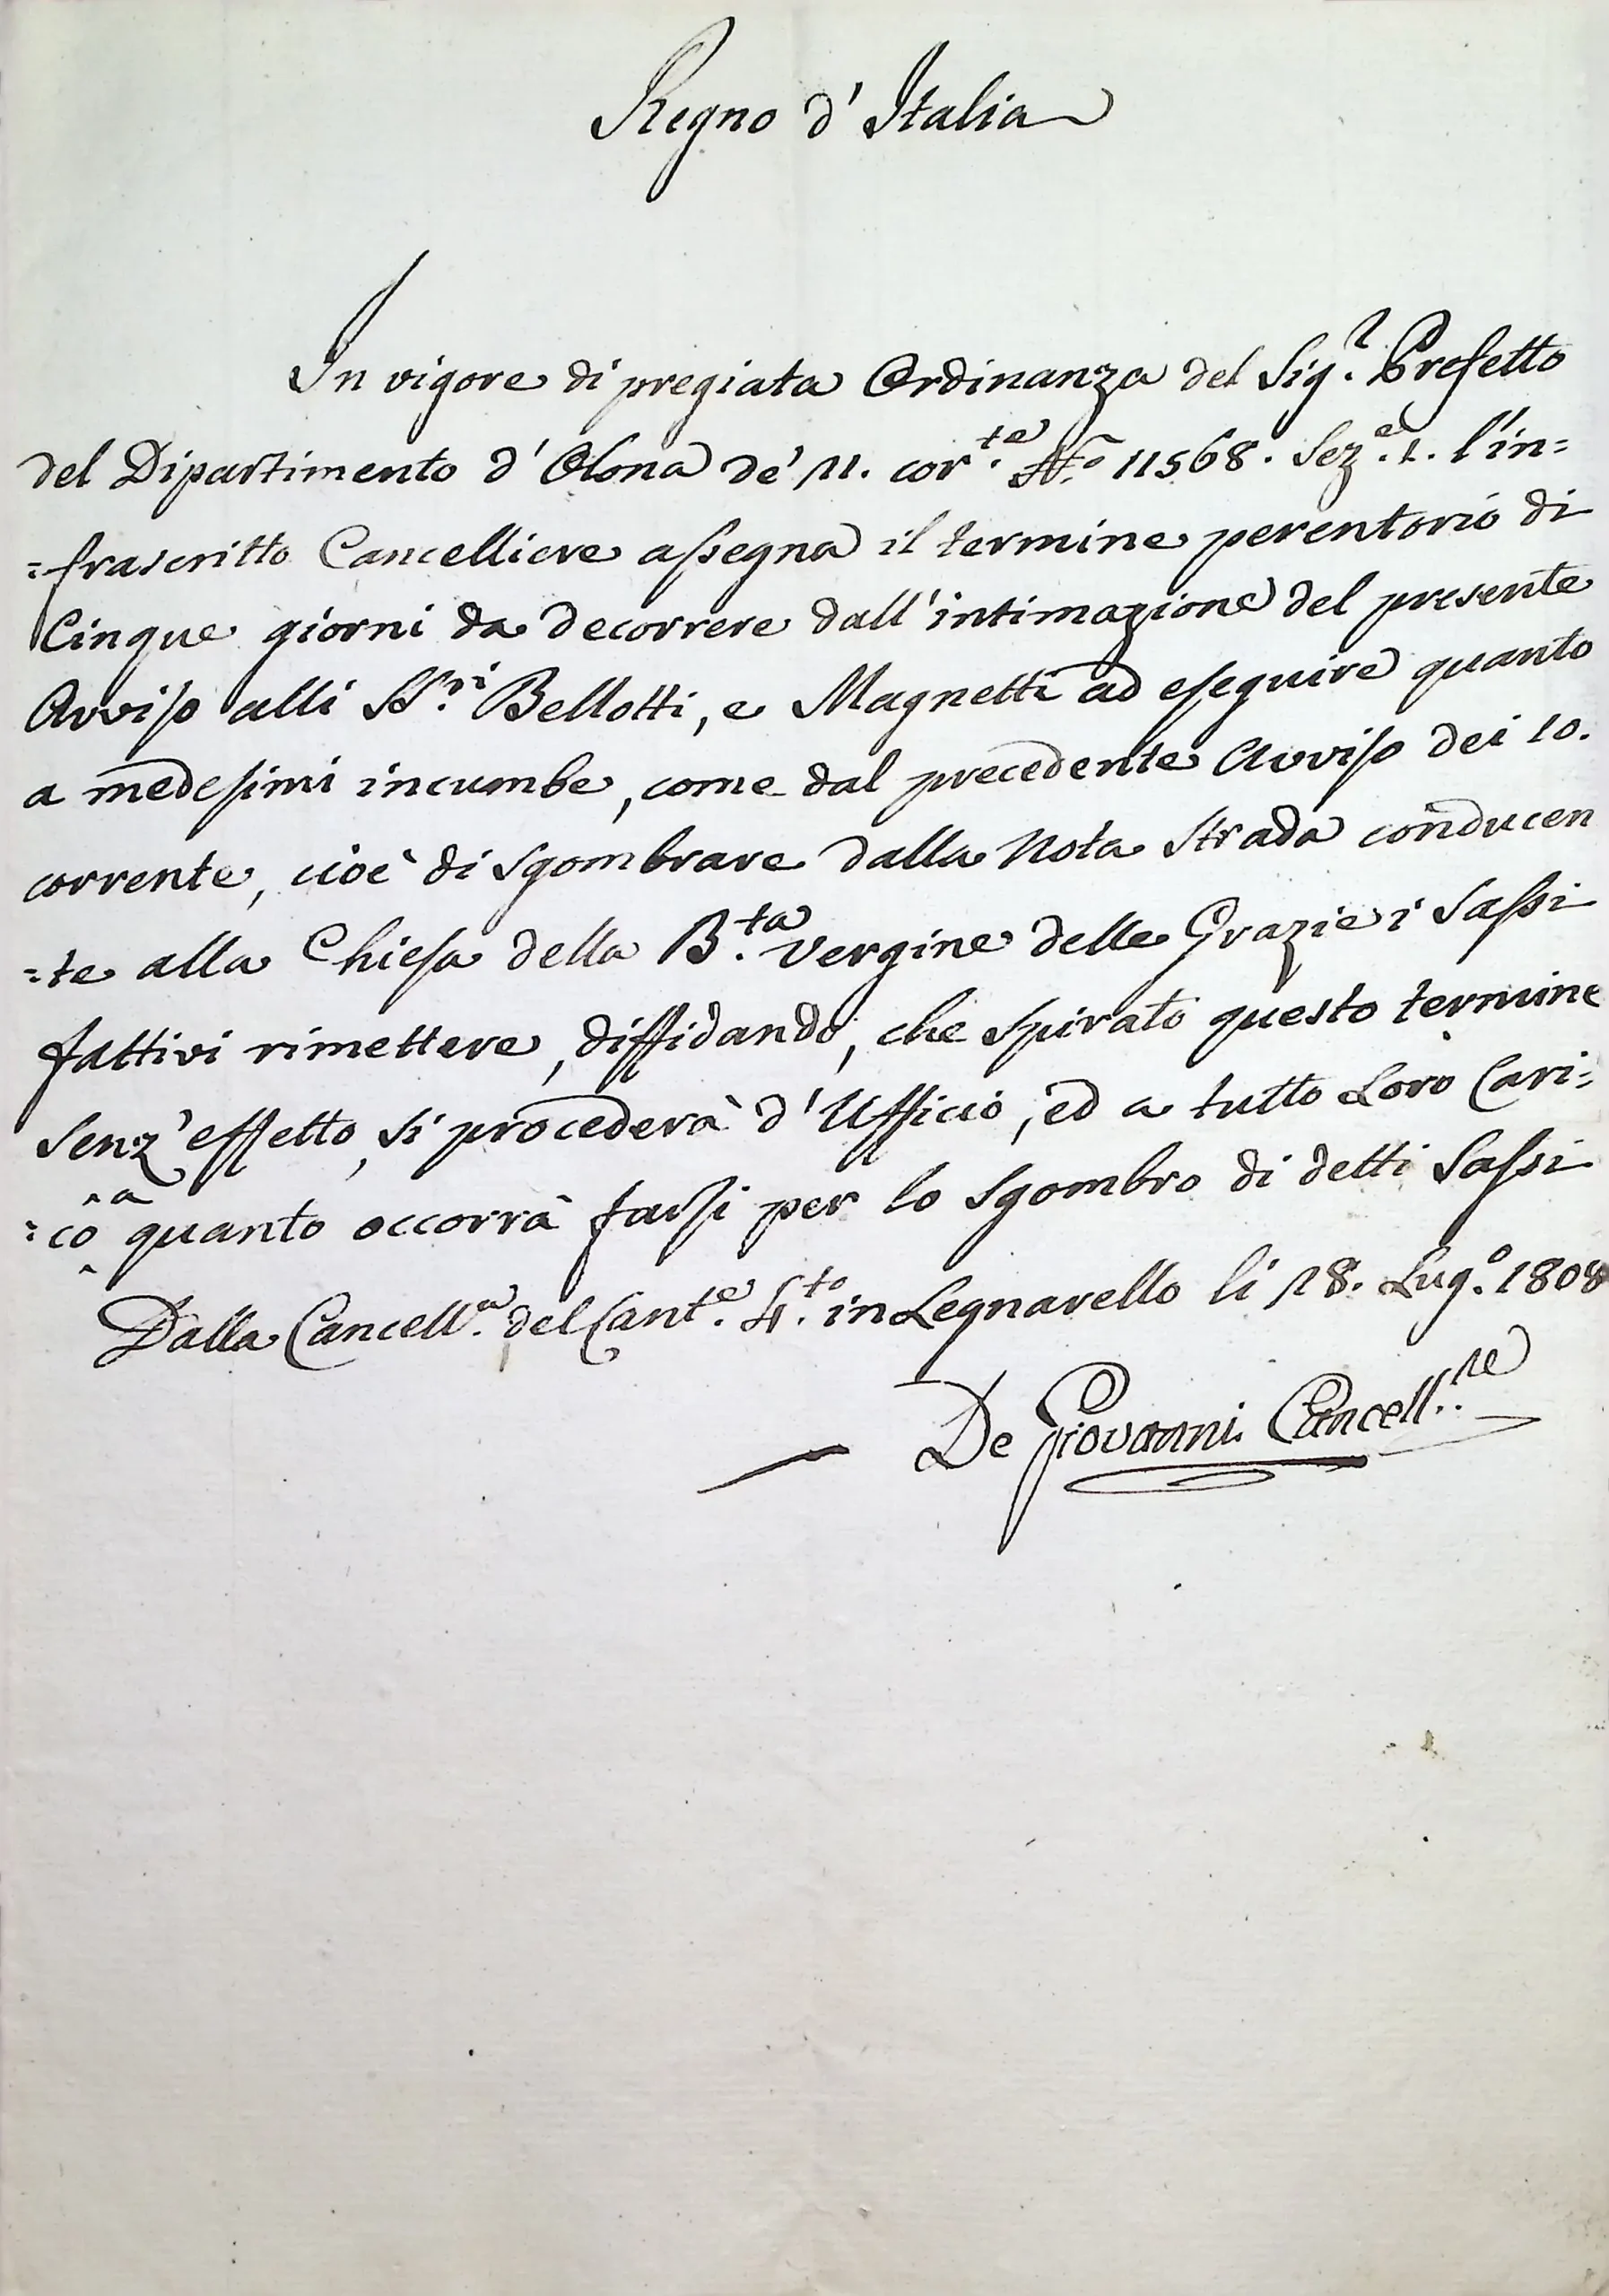 Regno d'Italia
In vigore di pregiata Ordinanza del Sig.r Prefetto
del Dipartimento d'Olona de' 11. cor.te N.o 11568. Sez.e 1. l'in=
=frascritto Cancelliere assegna il termine perentorio di
Cinque giorni da decorrere dall'intimazione del presente
Avviso alli SS.ri Bellotti, e Magnetti ad eseguire quanto
a medesimi incumbe, come dal precedente Avviso dei 10.
corrente, cioè di sgombrare dalla nota Strada conducen
=te alla Chiesa della B.ta Vergine delle Grazie i Sassi
fattivi rimettere, diffidando, che spirato questo termine
senz'effetto, si procederà d'Ufficio, ed a tutto Loro Cari=
=co a quanto occorrà farsi per lo sgombro di detti Sassi
Dalla Cancell.a del Cant.e 4.to in Legnarello li 18. Lug.o 1808
De Giovanni Cancell.re